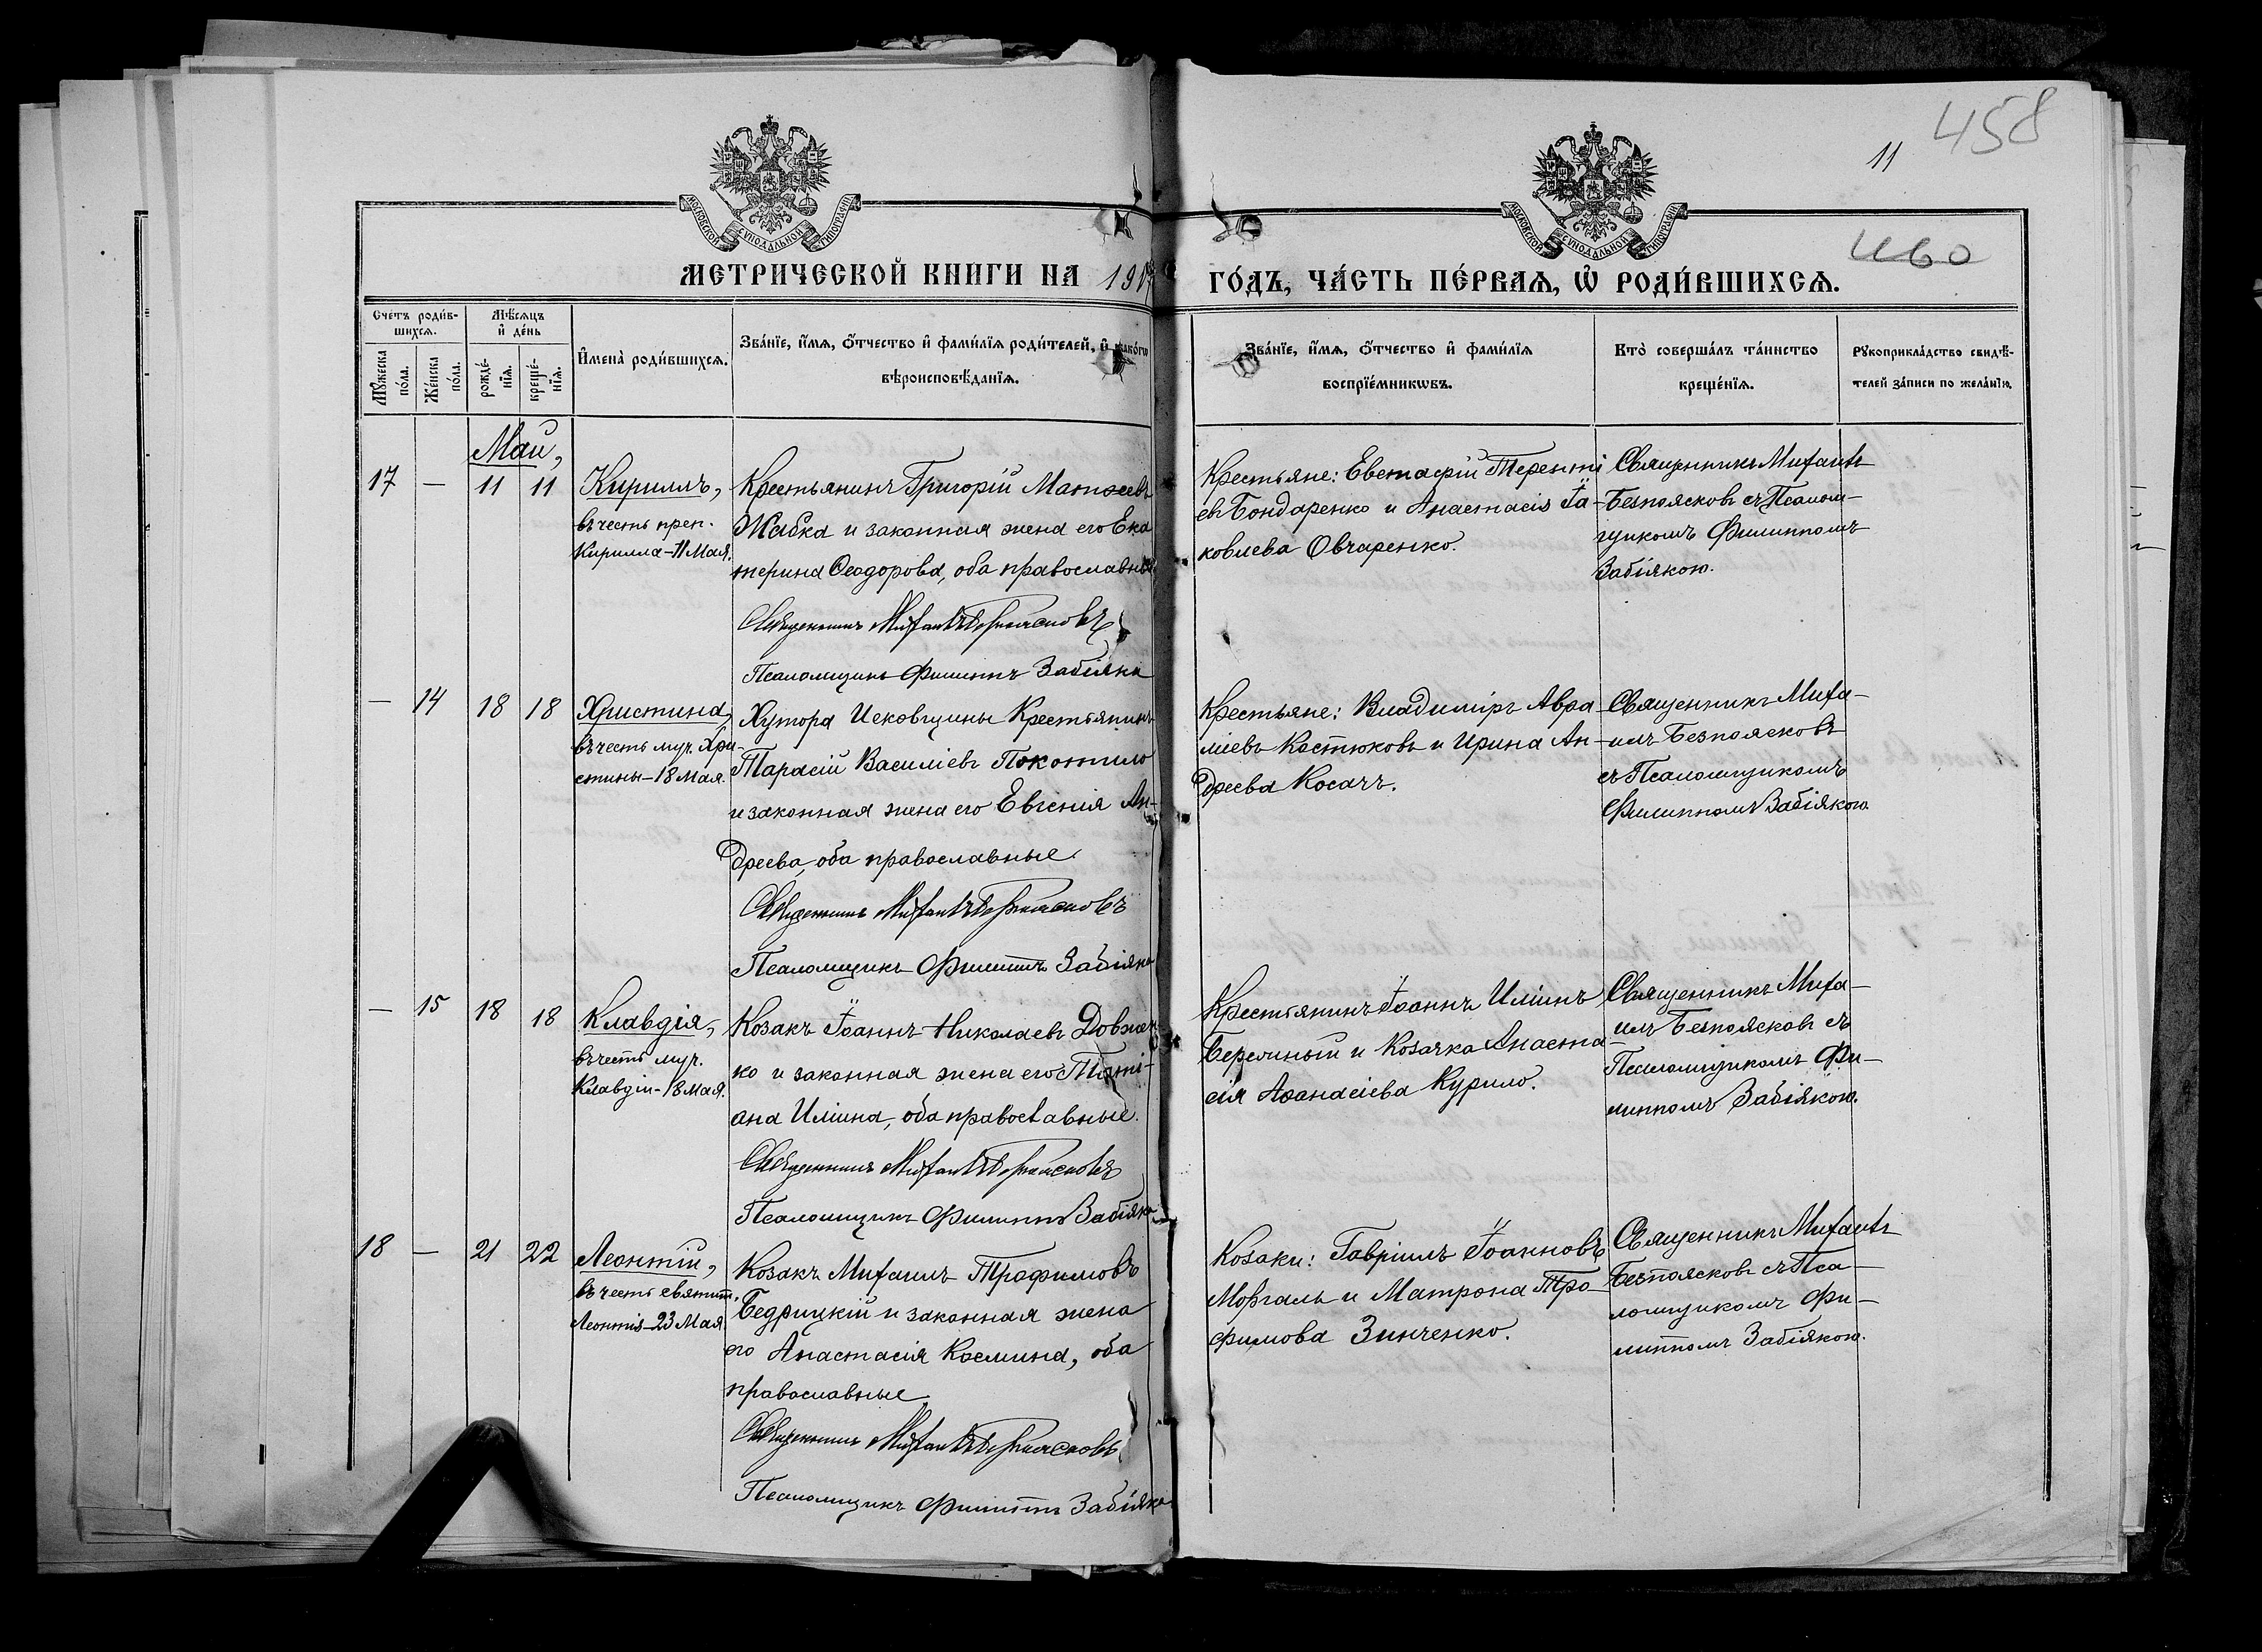 458
11
МОСКОВСКОЙ СѴНОДАЛЬНОЙ ТИПОГРАФІИ
МОСКОВСКОЙ СѴНОДАЛЬНОЙ ТИПОГРАФІИ
МЕТРИЧЕСКОЙ КНИГИ НА
ГО́ДЪ, ЧА́СТЬ ПЕ́РВАѦ, Ѡ҆ РОДИ́ВШИХСѦ.
Сче́тъ роди́в-
шихсѧ.
Мѣ́сѧцъ
и҆ де́нь
Мꙋ́жеска
по́ла.
Же́нска
по́ла.
рожде́-
нїѧ.
креще́-
нїѧ.
И҆мена̀ роди́вшихсѧ.
Зва́нїе, и҆́мѧ, ѻ҆́тчество и҆ фами́лїѧ роди́телей, и҆ како́гѡ
вѣроисповѣ́данїѧ.
Зва́нїе, и҆́мѧ, ѻ҆́тчество и҆ фами́лїѧ
воспрїе́мникѡвъ.
Кто̀ соверша́лъ та́инство
креще́нїѧ.
Рꙋкоприкла́дство свидѣ́-
телей за́писи по жела́нїю.
Май,
17 — 11 11 Кириллъ,
въ честь преп.
Кирилла - 11 Мая.
Крестьянинъ Григорій Матѳеевъ
Жабка и законная жена его Ека
терина Ѳеодорова, оба православные
Священникъ Михаилъ Безпоясковъ
Псаломщикъ Филиппъ Забіяка
Крестьяне: Евстафій Терентi
евъ Бондаренко и Анастасія Iа-
ковлева Овчаренко.
Священникъ Михаилъ
Безпоясковъ съ Псалом-
щикомъ Филиппомъ
Забіякою.
— 14 18 18 Христина,
въ честь муч. Хри-
стины - 18 Мая.
Хутора Исковщины Крестьянинъ
Тарасій Василіевъ Покотило
и законная жена его Евгенія Ан-
дреева, оба православные.
Священникъ Михаилъ Безпоясковъ
Псаломщикъ Филиппъ Забіяка
Крестьяне: Владиміръ Авра-
міевъ Костюковъ и Ирина Ан-
дреева Косачъ.
Священникъ Миха-
илъ Безпоясковъ
съ Псаломщикомъ
Филиппомъ Забіякою
— 15 18 18 Клавдія,
въ честь муч.
Клавдіи - 18 Мая.
Козакъ Іоаннъ Николаевъ Довжен-
ко и законная жена его Татi-
ана Иліина, оба православные.
Священникъ Михаилъ Безпоясковъ
Псаломщикъ Филиппъ Забіяка
Крестьянинъ Іоаннъ Иліинъ
и Козачка Анаста-
сія Аѳанасіева Курило.
Священникъ Миха-
илъ Безпоясковъ съ
Псаломщикомъ Фи-
липпомъ Забіякою.
18 — 21 22 Леонтій,
въ честь святит.
Леонтія - 23 Мая.
Козакъ Михаилъ Трофимовъ
Бедрицкій и законная жена
его Анастасія Космина, оба
православные
Священникъ Михаилъ Безпоясковъ
Псаломщикъ Филиппъ Забіяка
Козаки: Гавріилъ Іоанновъ
Моргаль и Матрона Тро-
фимова Зинченко.
Священникъ Михаилъ
Безпоясковъ съ Пса-
ломщикомъ Фи-
липпомъ Забіякою.